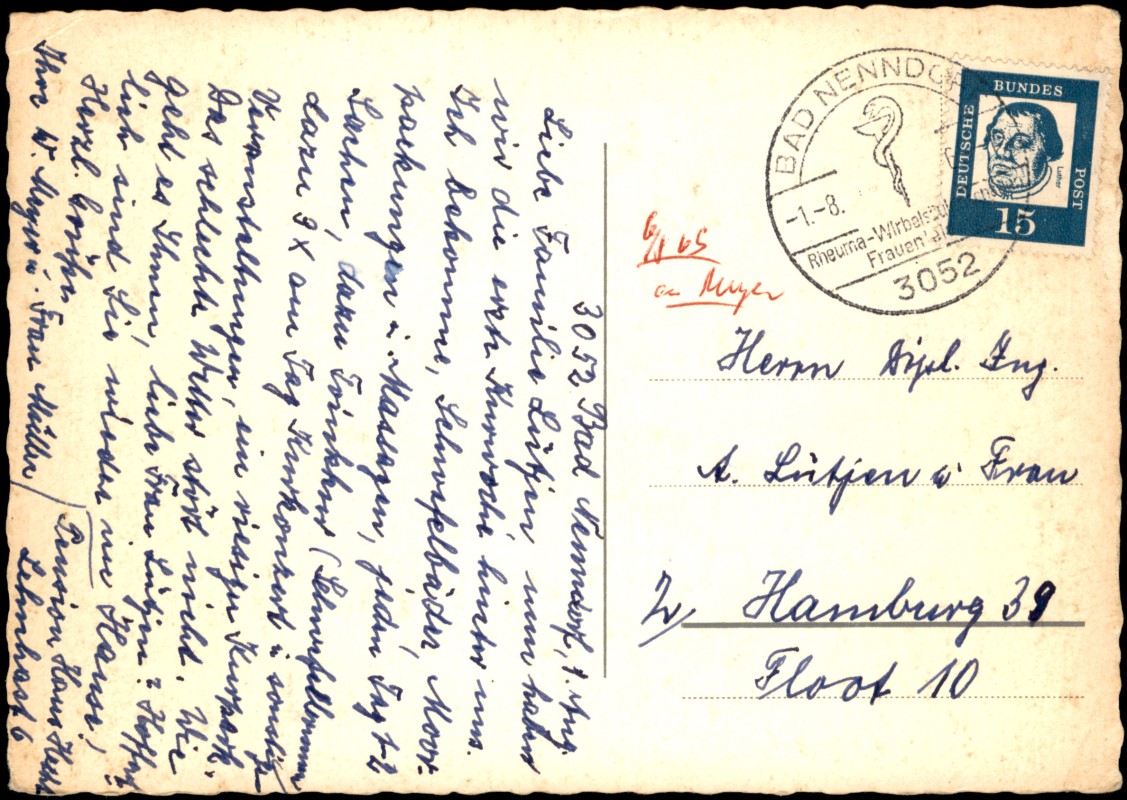 3052 Bad Nenndorf, 1. Aug.
Liebe Familie Lütjen, nun haben
wir die erste Kurwoche hinter uns.
Ich bekomme, Schwefelbäder, Moor-
packungen u. Massagen, jeden Tag 1-2
Sachen, dazu Trinkkur (Schwefelbrunnen
dazu 3 x am Tag Kurkonzert u. sonstige
Veranstaltungen, ein riesiger Kurpark.
Das schlechte Wetter stört nicht. Wie
geht es Ihnen, liebe Frau Lütjen? Hoffent-
lich sind Sie wieder im Hause,
Herzl. Grüße
Ihre W. Meyer u. Frau Müller
Pension Haus
6
BAD NENNDORF
-1.-8.
Rheuma-Wirbelsäule
Frauen
3052
DEUTSCHE
BUNDES
POST
Luther
15
65
Meyer
Herrn Dipl. Ing.
A. Lütjen u. Frau
2 Hamburg 39
Floot 10